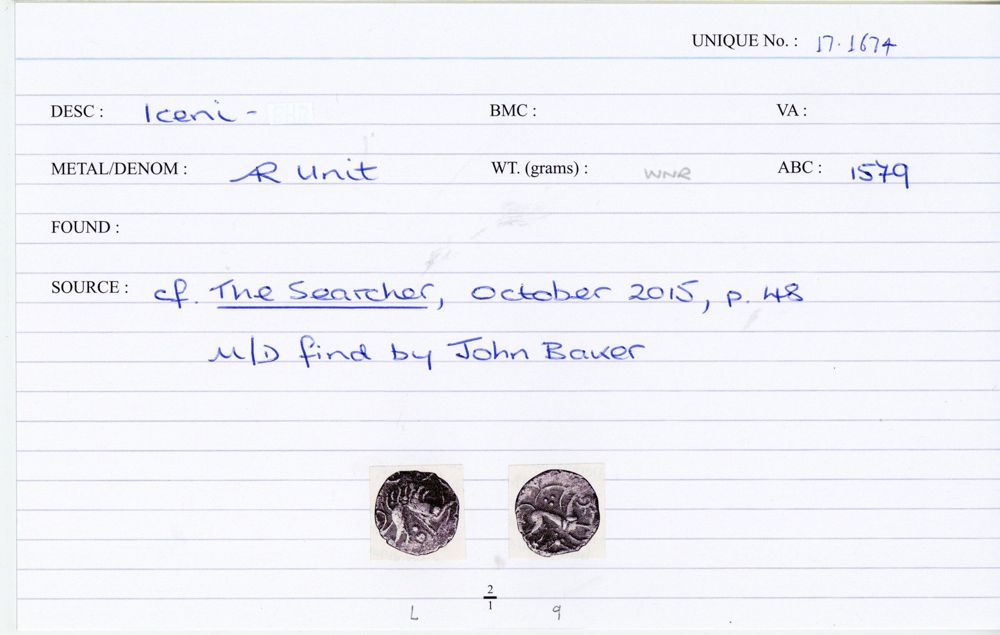 UNIQUE No. : 17.1674
DESC : Iceni - BMC : VA :
METAL/DENOM : AR Unit WT. (grams) : WNR ABC : 1579
FOUND :
SOURCE : cf. The Searcher, October 2015, p. 48
M/D find by John Baker
2
1
L 9